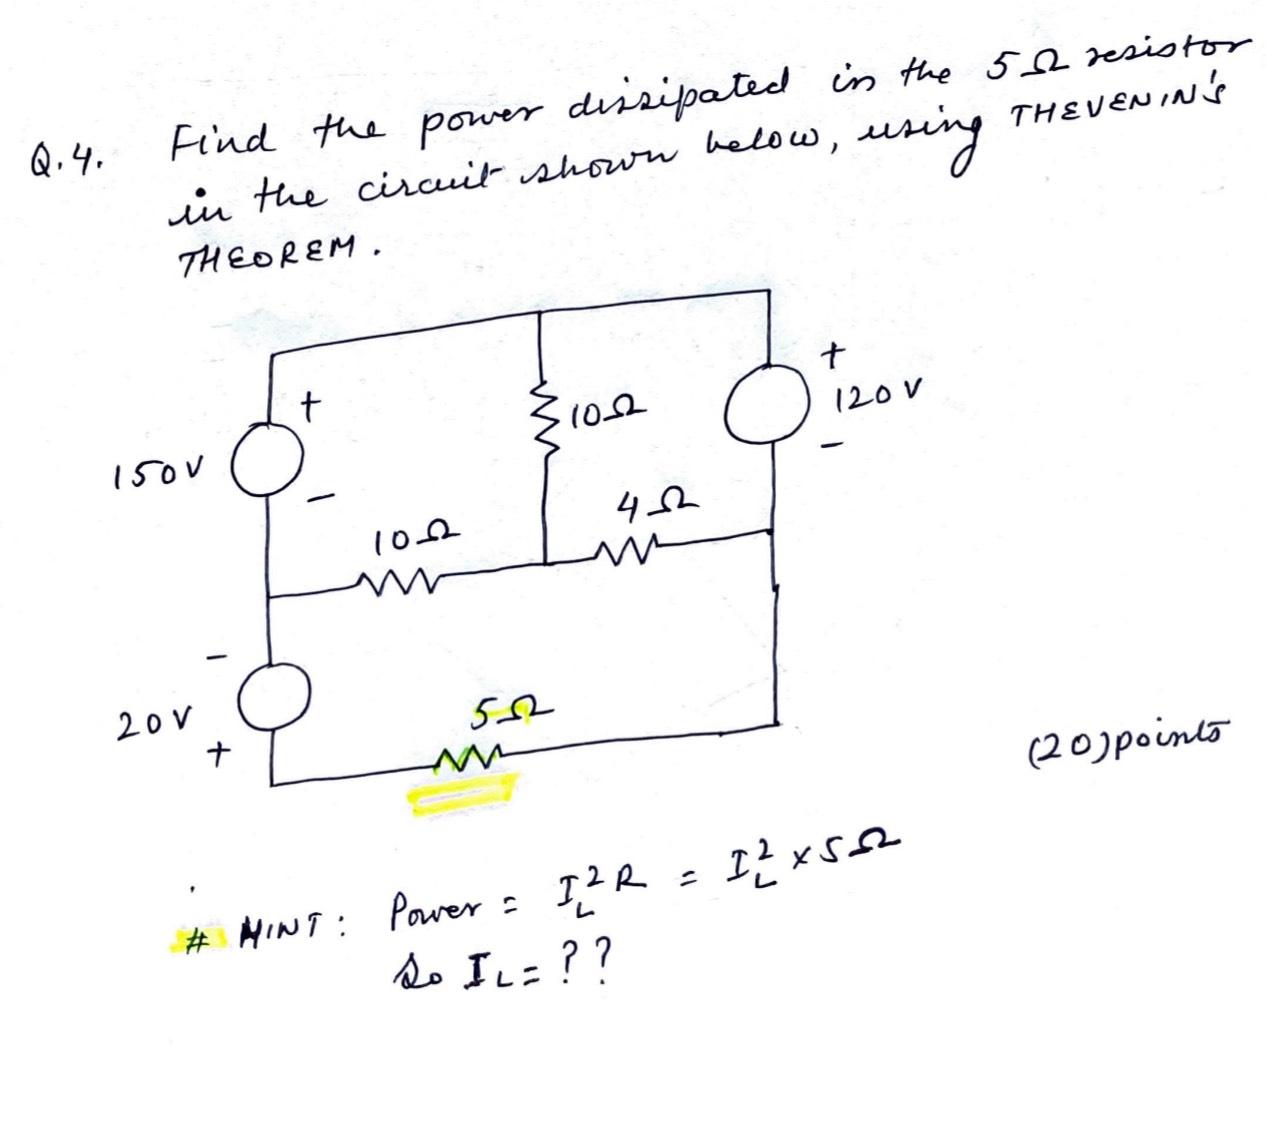 Q.4. Find the power dissipated in the 5Ω resistor
in the circuit shown below, using THEVENIN'S
THEOREM.
+
+
10Ω
120V
150V
−
−
4Ω
10Ω
−
5Ω
20V
+
(20) points
# HINT: Power = I_L^2 R = I_L^2 × 5Ω
So I_L = ??